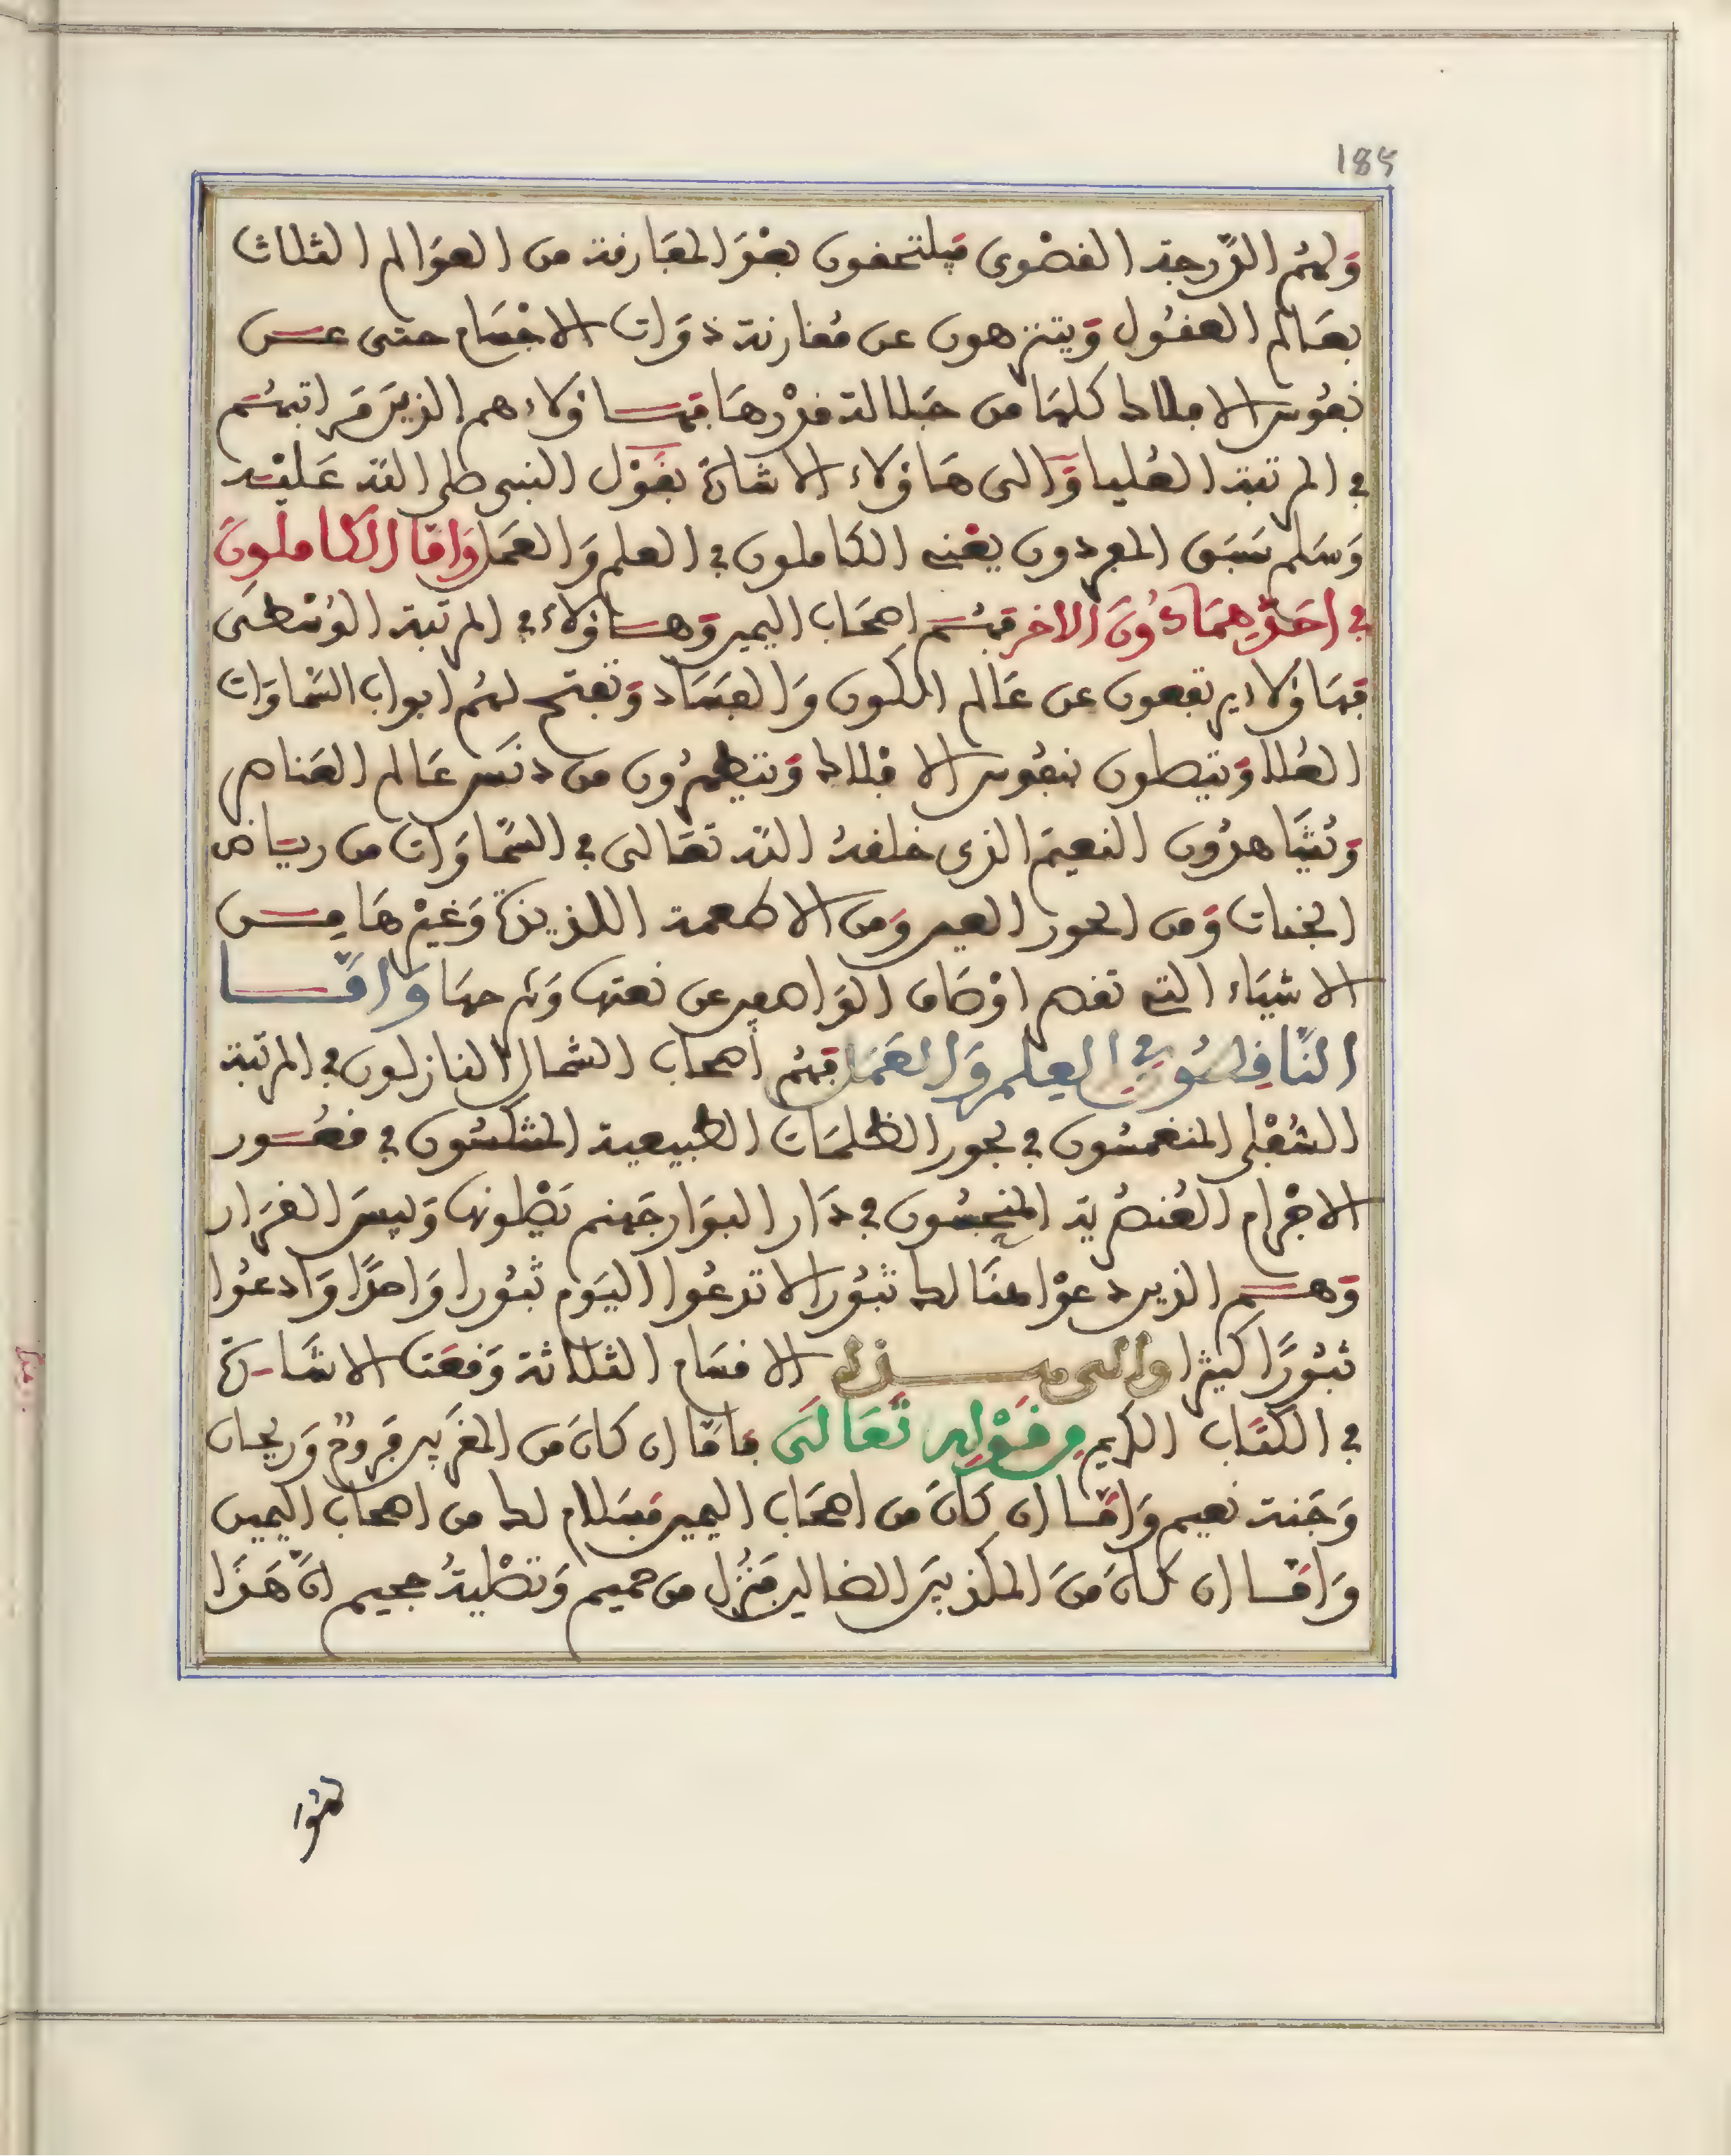 185
وَلهُم الدَّرجة القصْوى فيلتحفون بعْدَ المفَارقة من العوَالم الثلاث
بعَالم العقُول وَيتنزهون عن مُقارنة ذوَات الاجْسَام حتى عن
نفُوس الافلاك كلهَا من جَلالة قدْرهَا فهاؤلاء هم الذينَ مَراتبهُم
في المرتبة العُليا وَالى هَاؤلاء الاشارَة بقَوْل النبي صلى الله عَليْه
وَسَلم سَبَق المفردون يعْني الكاملون في العلم وَالعمَل وَامَّا الكَاملونَ
في احَدِهمَا دُونَ الاخر فهُم اصحَاب اليمين وَهاؤلاء في المرتبة الوُسْطى
فهَاؤلاء يرتفعون عن عَالم الكون وَالفسَاد وَتفتح لهُم ابواب السّمَاوَات
العُلا وَيتصلون بنفُوس الافْلاك وَيتطهرُون من دنَس عَالم العَناصر
وَيُشَاهدُون النعيمَ الذي خلقهُ الله تعَالى في السّمَاوَات من رياض
الجنات وَمن الحور العين وَمن الاطعمة اللذيذَة وَغيْرهَا من
الاشيَاء التي تقصر اوْصَاف الوَاصفين عن نعتها وَشرحهَا وَامَّا
النَّاقِصُون في العِلم وَالعَمَل فهُم أصحاب الشمال النازلون في المرتبة
السُّفْلى المنغمسُون في بحور الظلمَات الطبيعية المنتكسُون في قعُور
الاجْرام العُنصُرية المنحبسُون في دَار البوَار جَهنم يَصْلونها وَبيسَ القرَار
وَهم الذين دعوْا هنَالك ثبُورا لا تدعُوا اليَوم ثبُورا وَاحدًا وَادعُوا
ثبُورًا كثيرا والى هذه الاقسَام الثلاثة وَقعَت الاشَارَة
في الكتَاب الكَريم في قَوْلِه تَعَالَى فامَّا ان كانَ من المقرّبين فرَوحٌ وَريحان
وَجَنة نعيم وَامَّا ان كَانَ من اصحَاب اليمين فسَلام لك من اصحاب اليمين
وَامَّا ان كانَ منَ المكذبينَ الضالين فنُزُل من حميم وَتصْليةُ جحيم انَّ هَذَا
لهُوَا